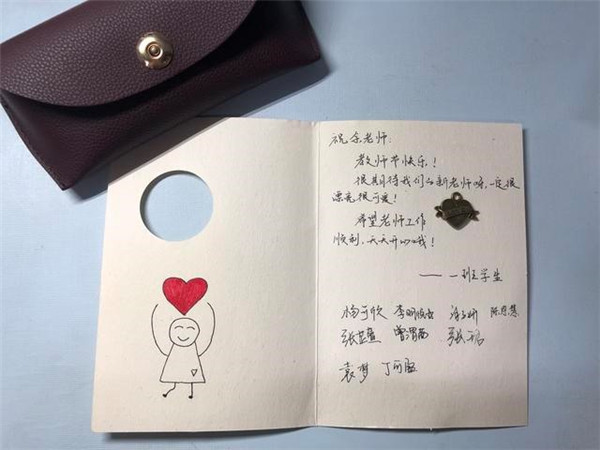 祝余老师:
教师节快乐!
很期待我们的新老师呀,一定很
漂亮很可爱!
希望老师工作
顺利,天天开心哦!
——一班学生
杨可欣 李明 陈思慧
张 曾渭茜 张
袁梦 丁可盈